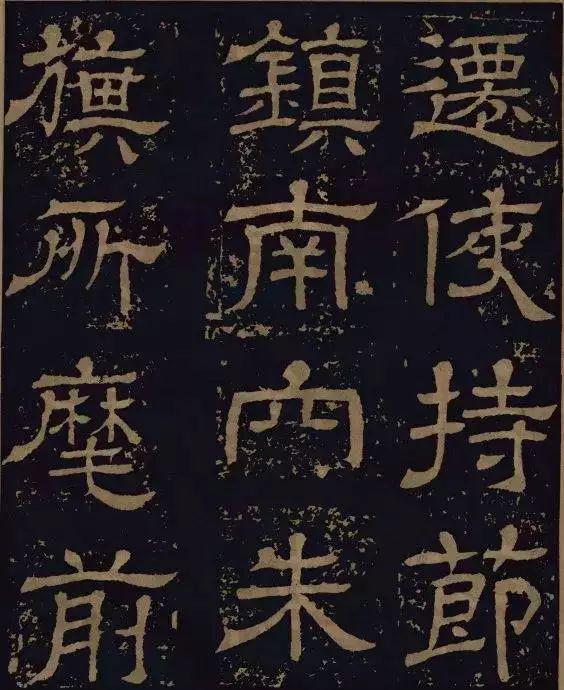 遷使持節
鎮南內朱
旗所麾前